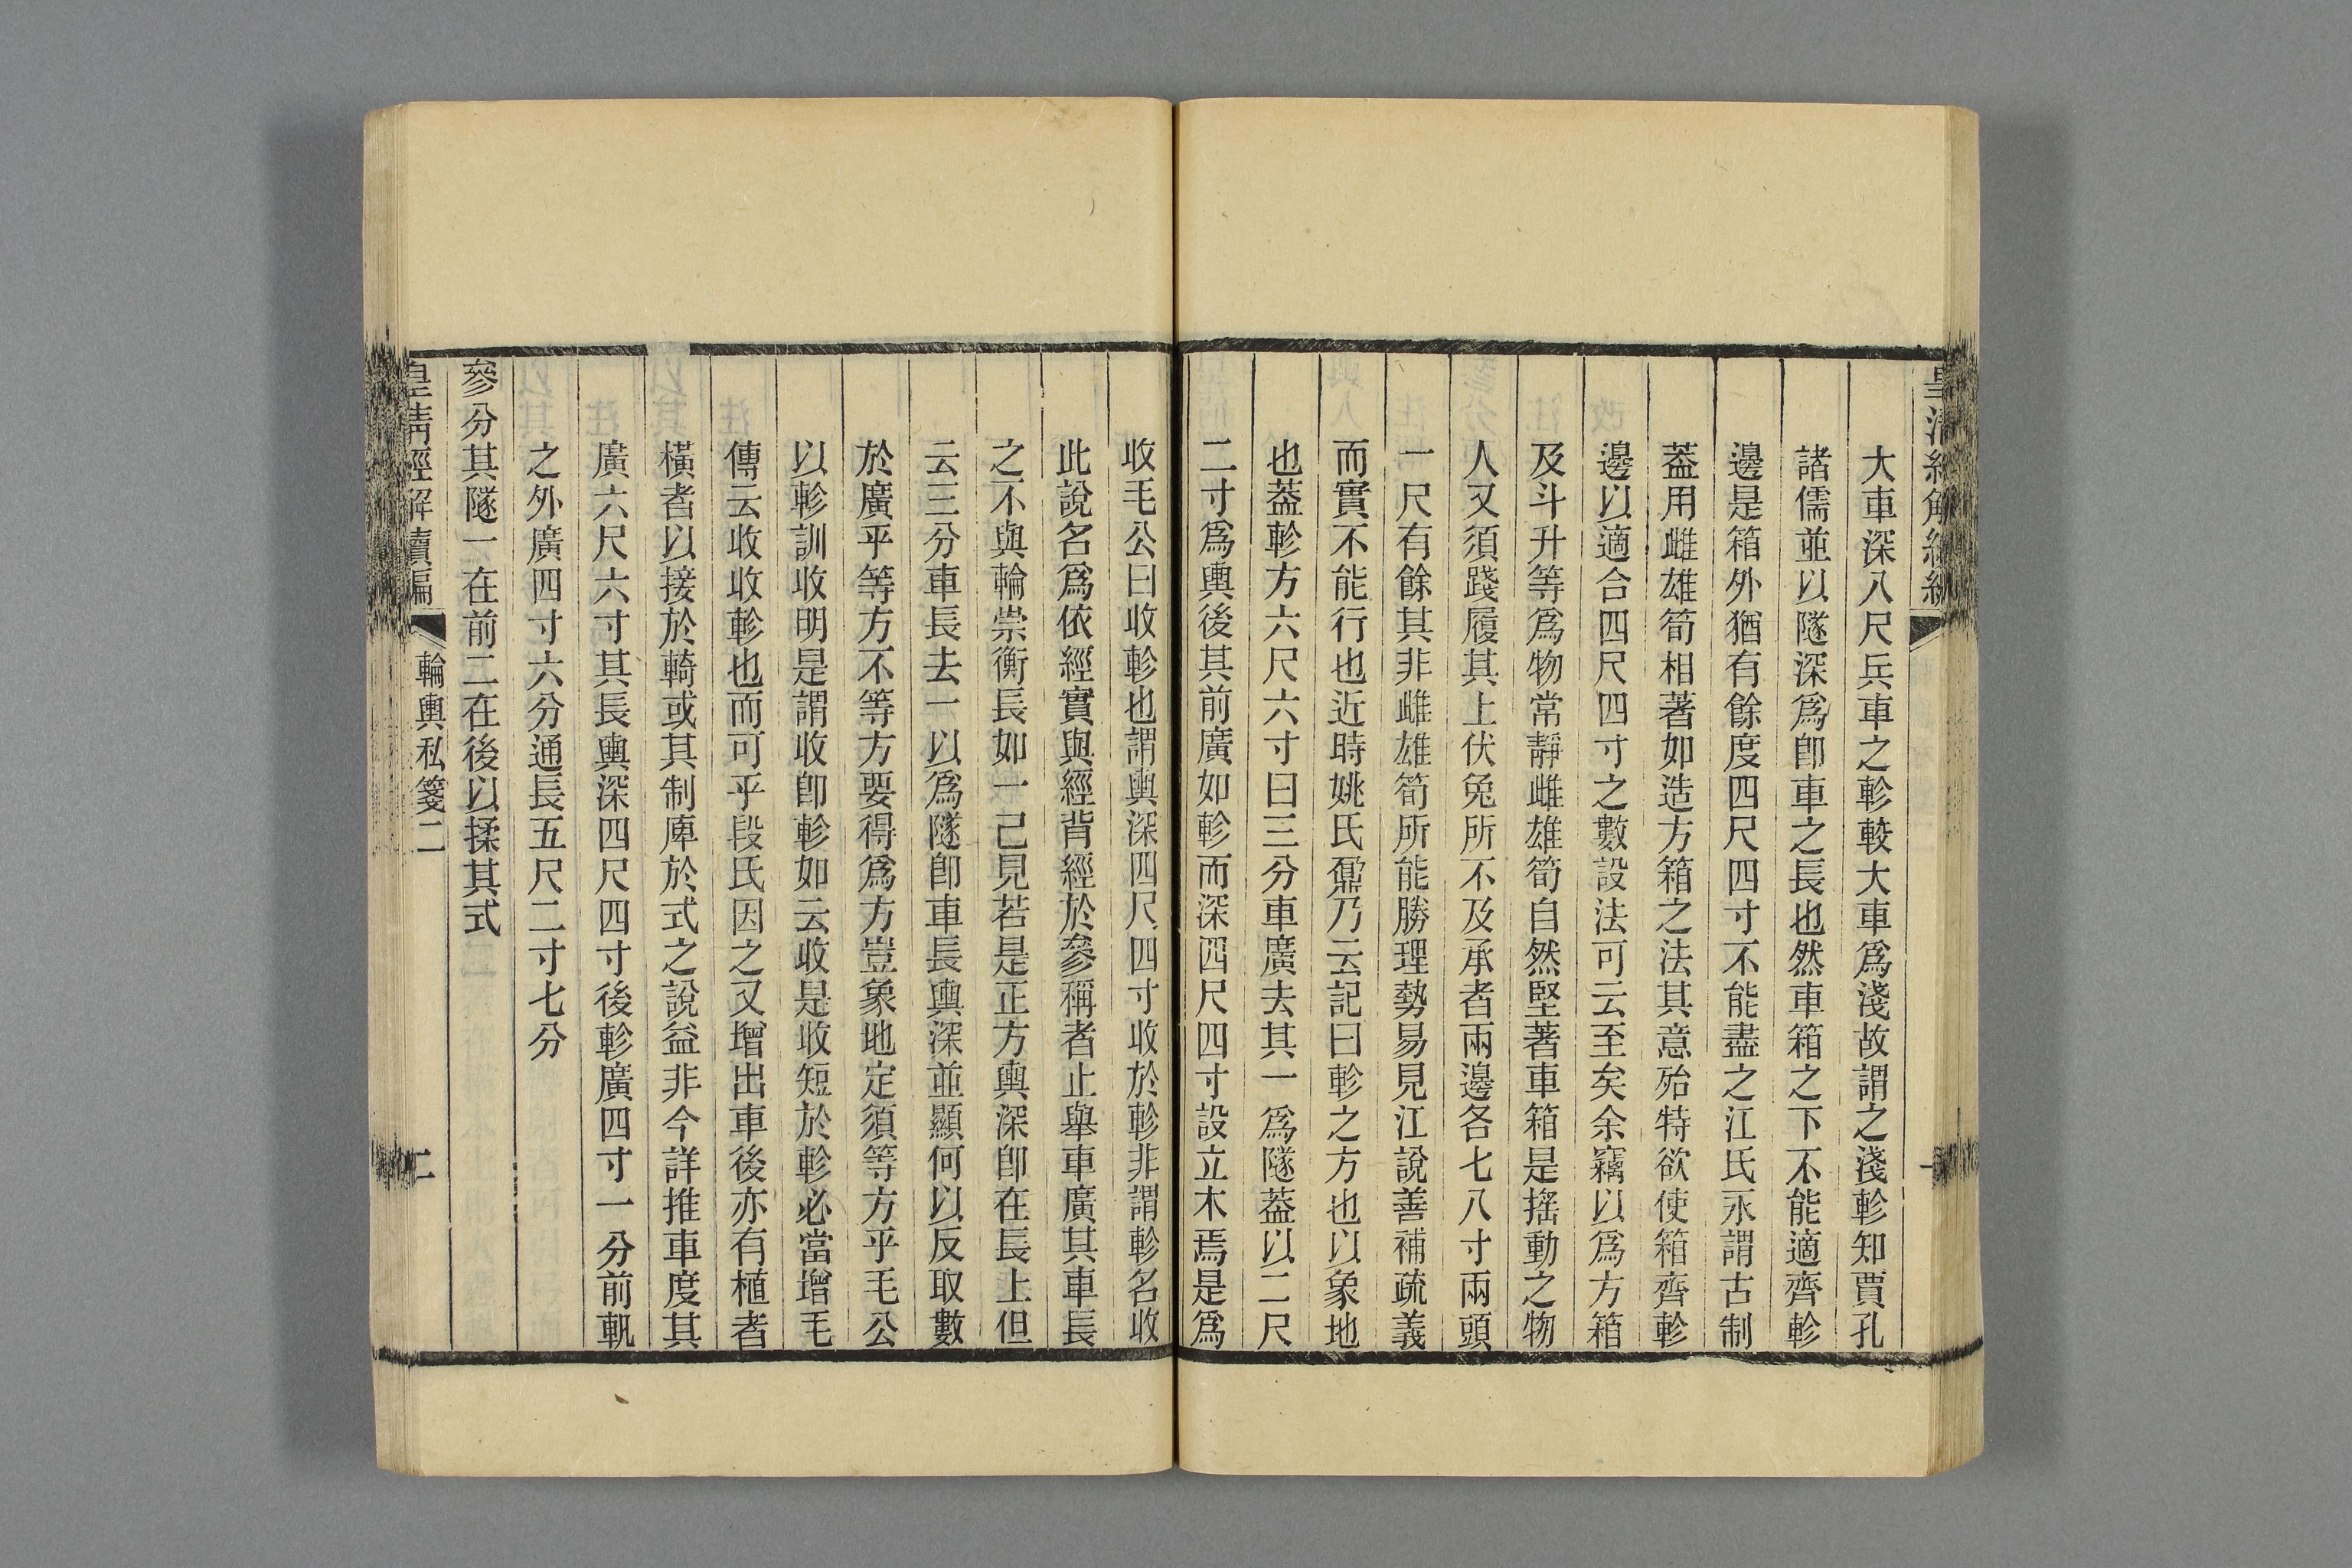 大車深八尺兵車之軫較大車爲淺故謂之淺軫知賈孔
諸儒並以隧深爲卽車之長也然車箱之下不能適齊軫
邊是箱外猶有餘度四尺四寸不能盡之江氏永謂古制
葢用雌雄筍相著如造方箱之法其意殆特欲使箱齊軫
邊以適合四尺四寸之數設法可云至矣余竊以爲方箱
及斗升等爲物常靜雌雄筍自然堅著車箱是搖動之物
人又須踐履其上伏兔所不及承者兩邊各七八寸兩頭
一尺有餘其非雌雄筍所能勝理勢易見江說善補疏義
而實不能行也近時姚氏鼐乃云記曰軫之方也以象地
也葢軫方六尺六寸曰三分車廣去其一爲隧葢以二尺
二寸爲輿後其前廣如軫而深四尺四寸設立木焉是爲
收毛公曰收軫也謂輿深四尺四寸收於軫非謂軫名收
此說名爲依經實與經背經於參稱者止舉車廣其車長
之不與輪崇衡長如一己見若是正方輿深卽在長上但
云三分車長去一以爲隧卽車長輿深並顯何以反取數
於廣乎等方不等方要得爲方豈象地定須等方乎毛公
以軫訓收明是謂收卽軫如云收是收短於軫必當增毛
傳云收收軫也而可乎段氏因之又增出車後亦有植者
橫者以接於輢或其制庳於式之說益非今詳推車度其
廣六尺六寸其長輿深四尺四寸後軫廣四寸一分前軓
之外廣四寸六分通長五尺二寸七分
參分其隧一在前二在後以揉其式
皇淸經解續編
輪輿私箋二
二